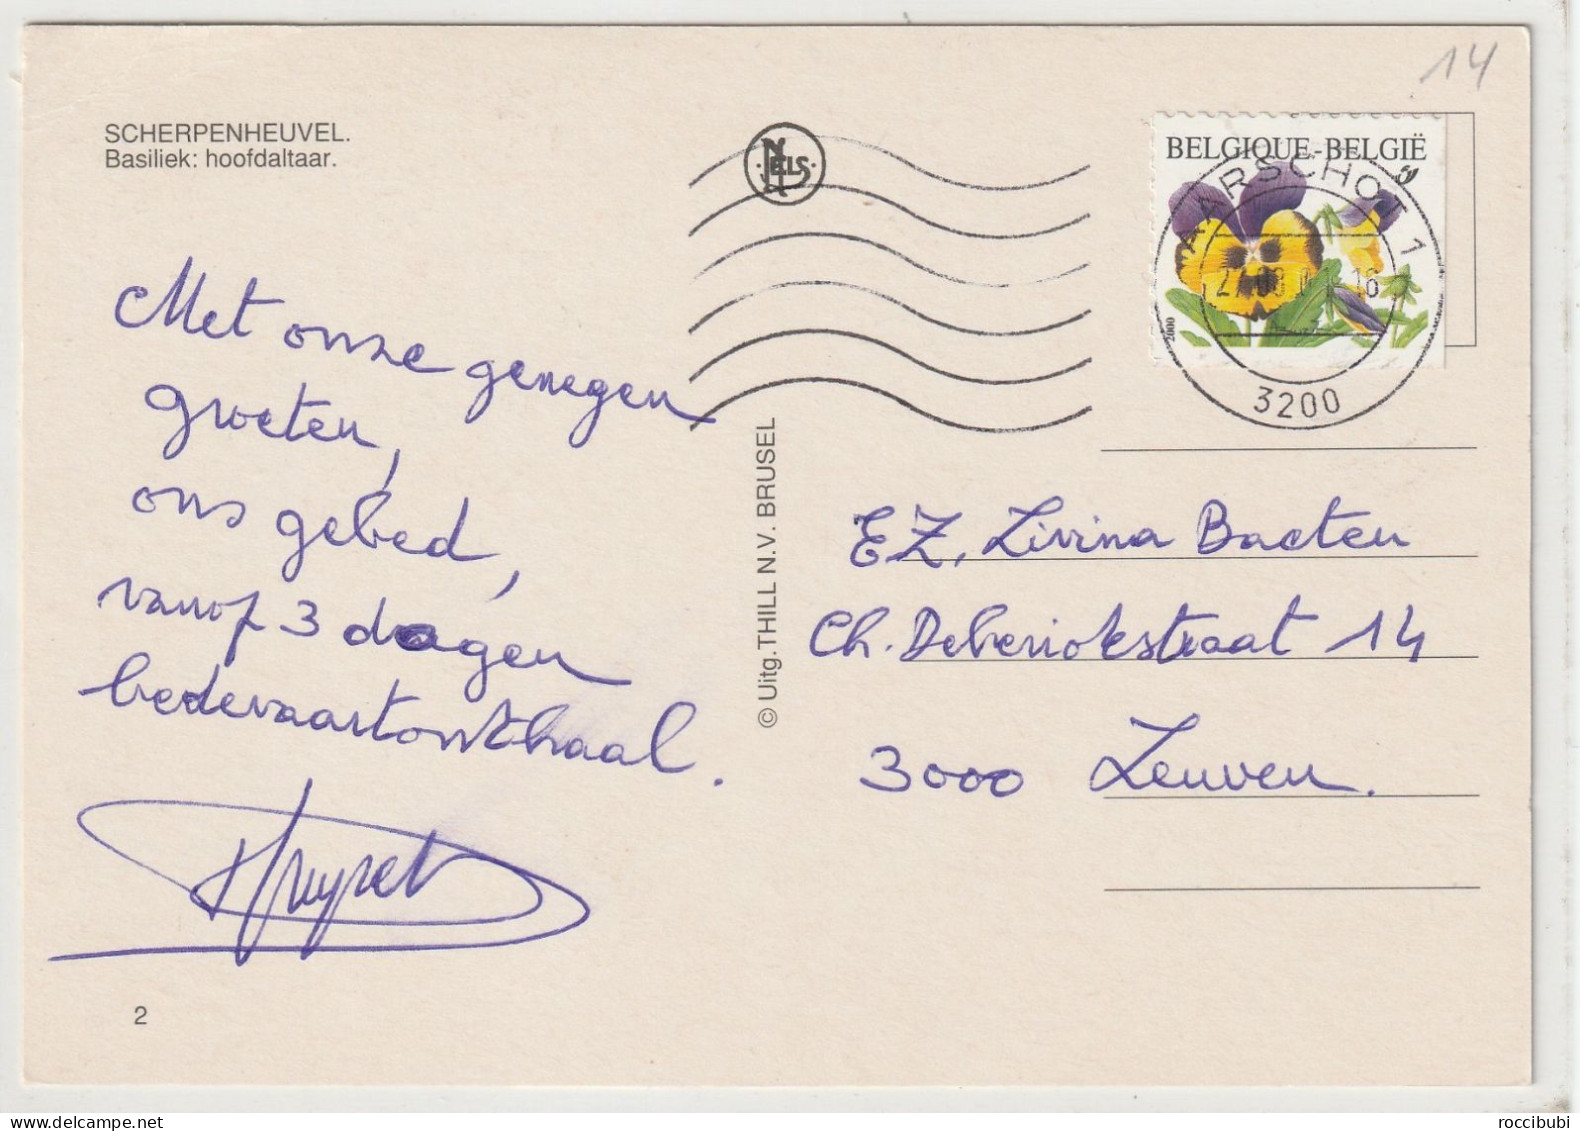 14
SCHERPENHEUVEL.
Basiliek: hoofdaltaar.
NELS
BELGIQUE-BELGIË
AARSCHOT 1
3200
2000
Met onze genegen
groeten,
ons gebed,
vanop 3 dagen
bedevaartonthaal.
2
© Uitg. THILL N.V. BRUSEL
EZ. Livina Baeten
Ch. Deberiotstraat 14
3000 Leuven.